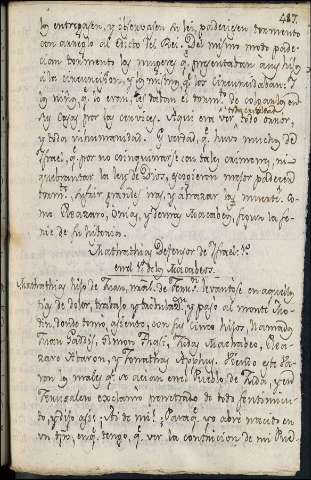 427.
los entregasen, y observasen su lei, padeciesen tormento
con arreglo al Edicto del Rei. Del mismo modo pade-
cian tormento las mugeres q.^e presentaban sus hijos
à la circuncision, y lo mismo q.^e los circuncidaban: Y
los niños q.^e lo eran, les daban el torm.^to de colgarlos en
sus casas por las cervices. Aqui era ver todo dolor,
y toda inhumanidad. Y verdad, q.^e huvo muchos de
Israel, q.^e por no coinquinarse con tales crimenes, ni
quebrantar la lei de Dios, escogieron mayor padecer
torm.^tos, sufrir grandes iras, y abrazar la muerte: co-
mo Eleazaro, Onias, y demas Macabeos, segun la se-
rie de su historia.
Mathathias Defensor de Israel. 1.^o
en el 1.^o de los Macabeos.
Mathathias hijo de Juan, de Jerus. levantose en aquellos
dias de dolor, trabajo y tribulac.^on y pasó al monte Mo-
din, donde tomó asiento, con sus cinco hijos, llamados
Juan Gaddis, Simon Thasi, Judas Machabeo, Elea-
zaro Abaron, y Jonathas Apphus. este Va-
ron los males q.^e se acian en el Pueblo de Juda, y en
Jerusalem exclamó penetrado de todo sentimien-
to, y dijo assi: Ai de mi! Paraq.^e yo abre nacido en
un dia, en q.^e tengo q.^e ver la contricion de mi Pue-